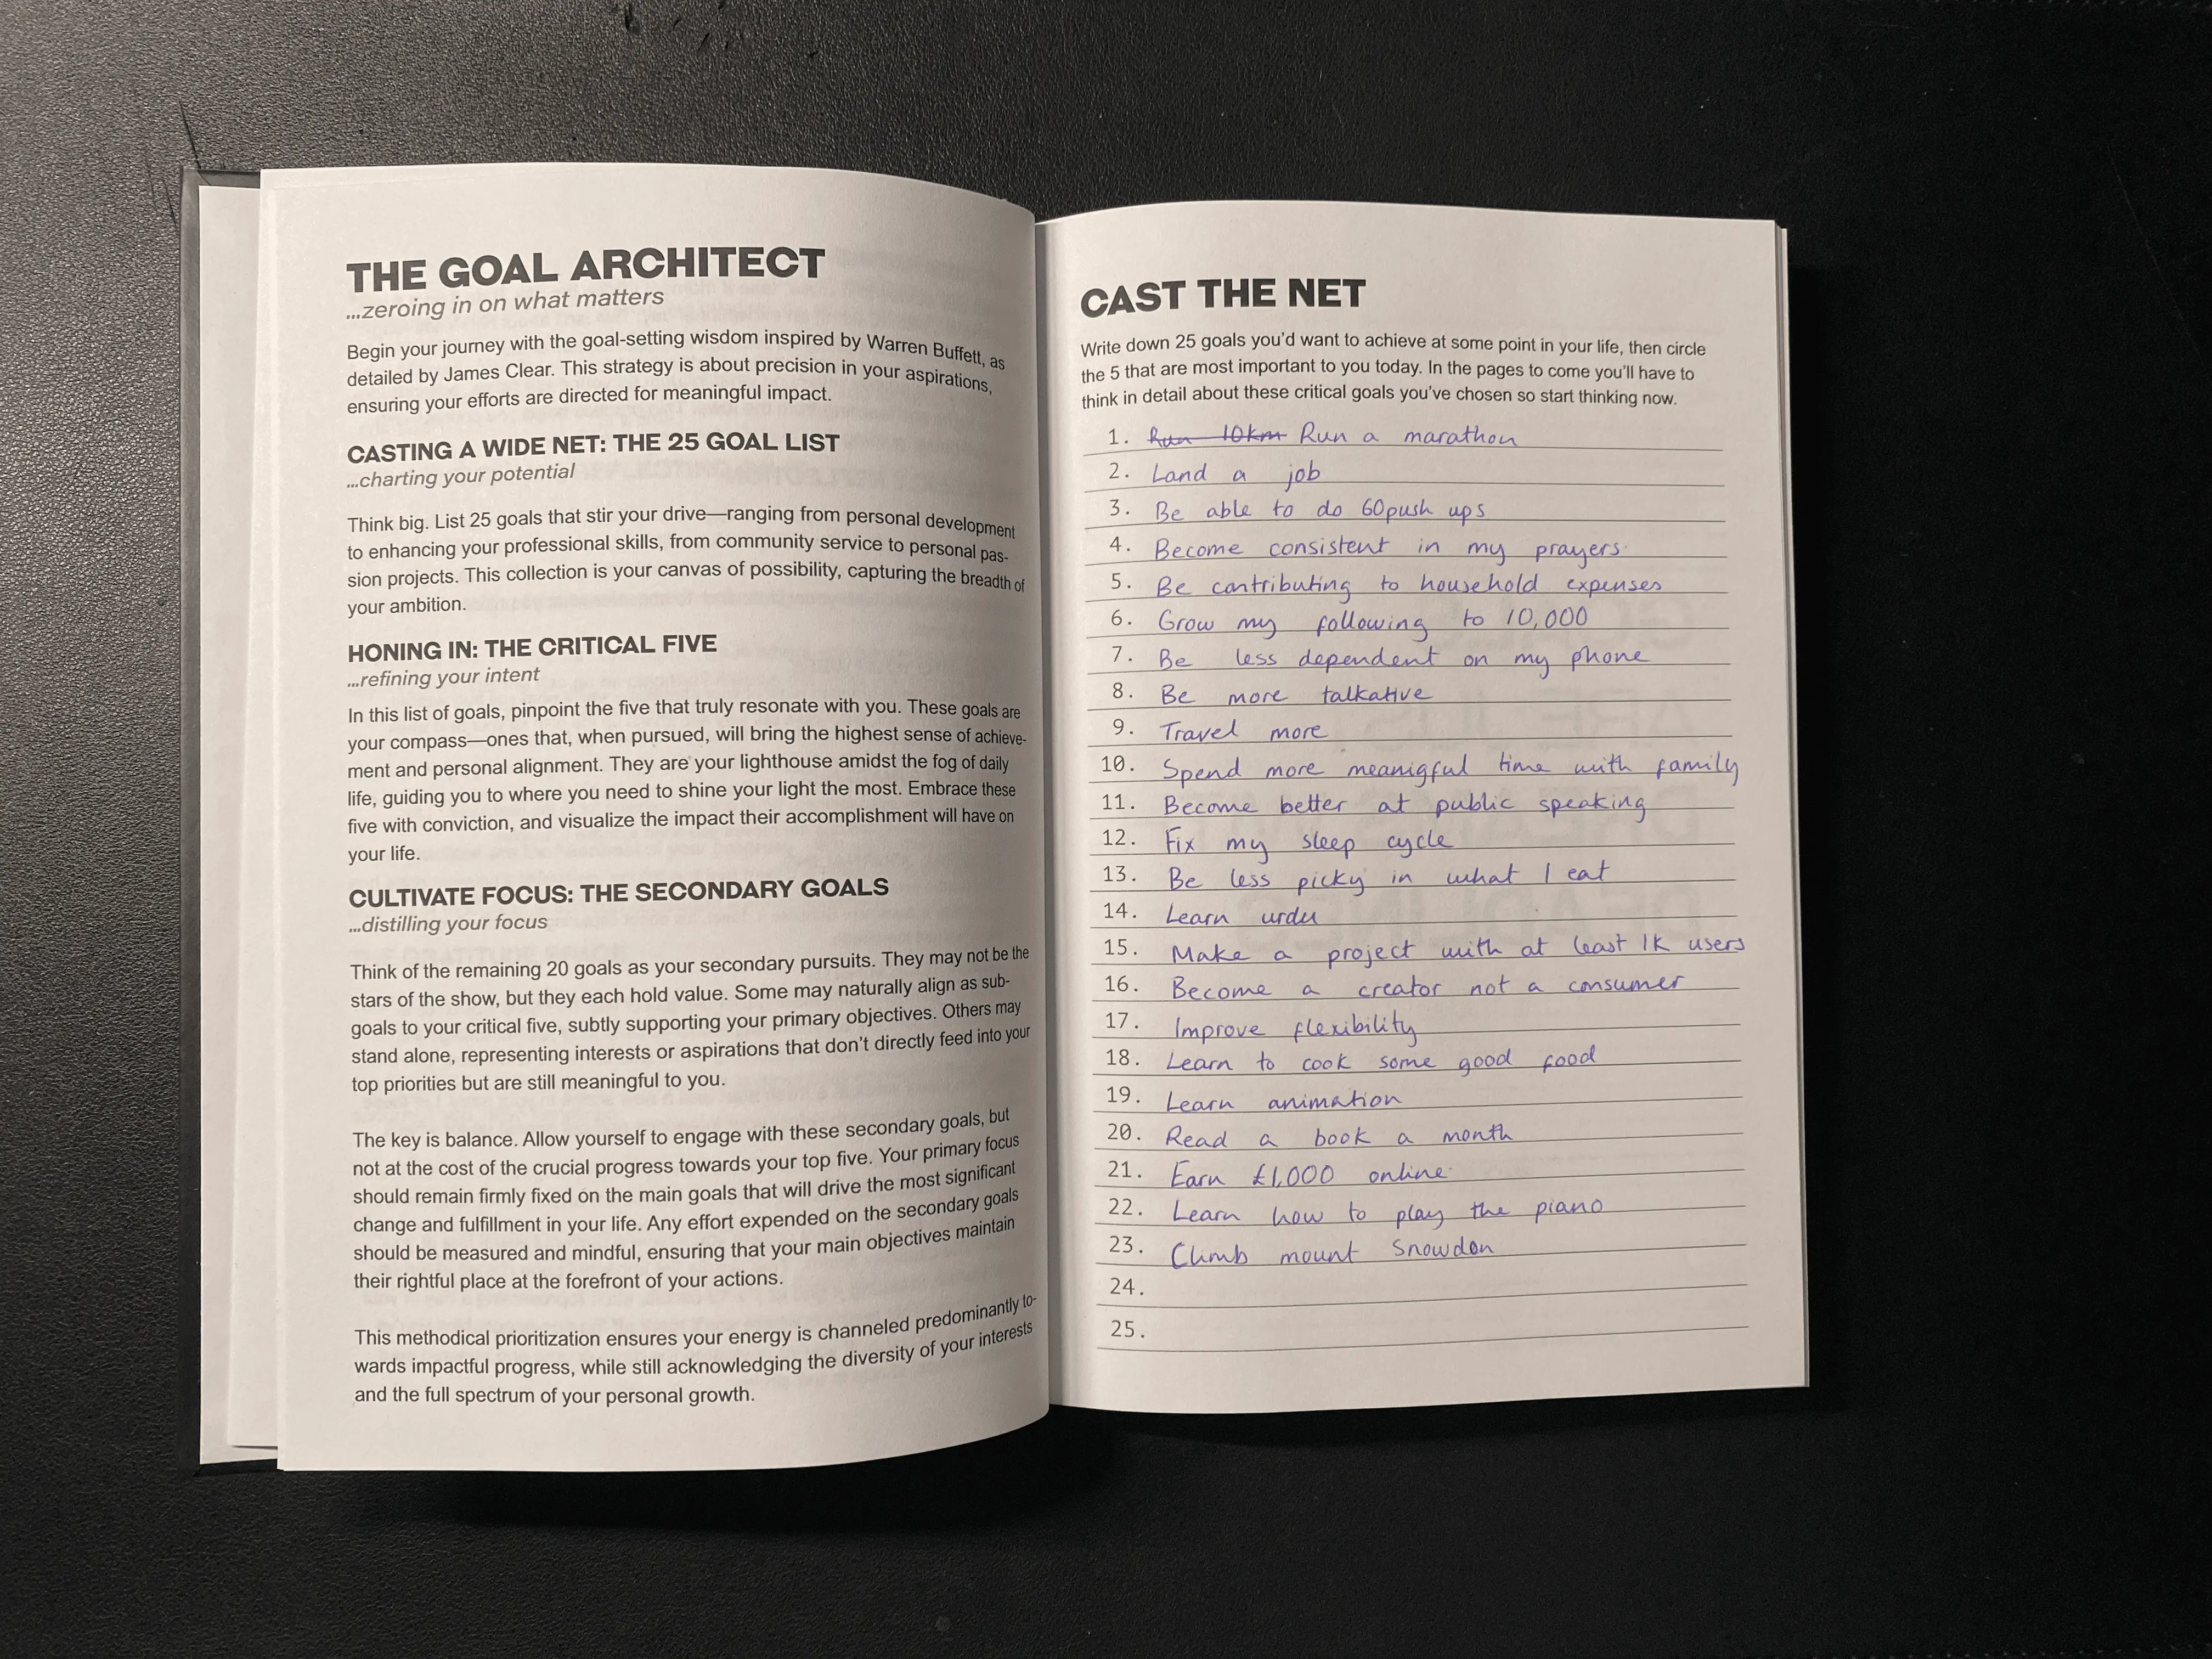 THE GOAL ARCHITECT
...zeroing in on what matters
Begin your journey with the goal-setting wisdom inspired by Warren Buffett, as
detailed by James Clear. This strategy is about precision in your aspirations,
ensuring your efforts are directed for meaningful impact.
CASTING A WIDE NET: THE 25 GOAL LIST
...charting your potential
Think big. List 25 goals that stir your drive—ranging from personal development
to enhancing your professional skills, from community service to personal pas-
sion projects. This collection is your canvas of possibility, capturing the breadth of
your ambition.
HONING IN: THE CRITICAL FIVE
...refining your intent
In this list of goals, pinpoint the five that truly resonate with you. These goals are
your compass—ones that, when pursued, will bring the highest sense of achieve-
ment and personal alignment. They are your lighthouse amidst the fog of daily
life, guiding you to where you need to shine your light the most. Embrace these
five with conviction, and visualize the impact their accomplishment will have on
your life.
CULTIVATE FOCUS: THE SECONDARY GOALS
...distilling your focus
Think of the remaining 20 goals as your secondary pursuits. They may not be the
stars of the show, but they each hold value. Some may naturally align as sub-
goals to your critical five, subtly supporting your primary objectives. Others may
stand alone, representing interests or aspirations that don't directly feed into your
top priorities but are still meaningful to you.
The key is balance. Allow yourself to engage with these secondary goals, but
not at the cost of the crucial progress towards your top five. Your primary focus
should remain firmly fixed on the main goals that will drive the most significant
change and fulfillment in your life. Any effort expended on the secondary goals
should be measured and mindful, ensuring that your main objectives maintain
their rightful place at the forefront of your actions.
This methodical prioritization ensures your energy is channeled predominantly to-
wards impactful progress, while still acknowledging the diversity of your interests
and the full spectrum of your personal growth.
CAST THE NET
Write down 25 goals you'd want to achieve at some point in your life, then circle
the 5 that are most important to you today. In the pages to come you'll have to
think in detail about these critical goals you've chosen so start thinking now.
1. Run 10km Run a marathon
2. Land a job
3. Be able to do 60 push ups
4. Become consistent in my prayers
5. Be contributing to household expenses
6. Grow my following to 10,000
7. Be less dependent on my phone
8. Be more talkative
9. Travel more
10. Spend more meanigful time with family
11. Become better at public speaking
12. Fix my sleep cycle
13. Be less picky in what I eat
14. Learn urdu
15. Make a project with at least 1K users
16. Become a creator not a consumer
17. Improve flexibility
18. Learn to cook some good food
19. Learn animation
20. Read a book a month
21. Earn £1,000 online
22. Learn how to play the piano
23. Climb mount Snowdon
24.
25.